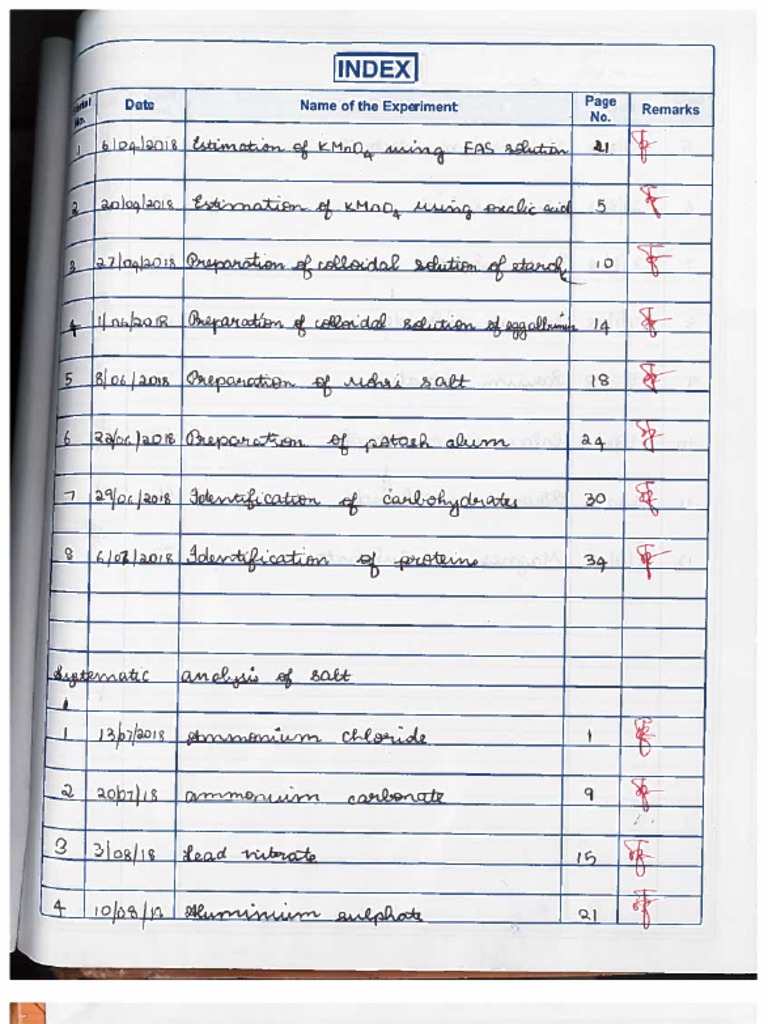 INDEX
Serial No. Date Name of the Experiment Page No. Remarks
1 6/04/2018 Estimation of KMnO4 using FAS solution
2 20/04/2018 Estimation of KMnO4 using oxalic acid 5
3 27/04/2018 Preparation of colloidal solution of starch 10
4 1/06/2018 Preparation of colloidal solution of egg albumin 14
5 8/06/2018 Preparation of Mohr salt 18
6 22/06/2018 Preparation of potash alum 24
7 29/06/2018 Identification of carbohydrates 30
8 6/07/2018 Identification of proteins 34
Systematic analysis of salt
1 13/07/2018 Ammonium chloride 1
2 20/07/18 Ammonium carbonate 9
3 3/08/18 Lead nitrate 15
4 10/08/18 Aluminium sulphate 21